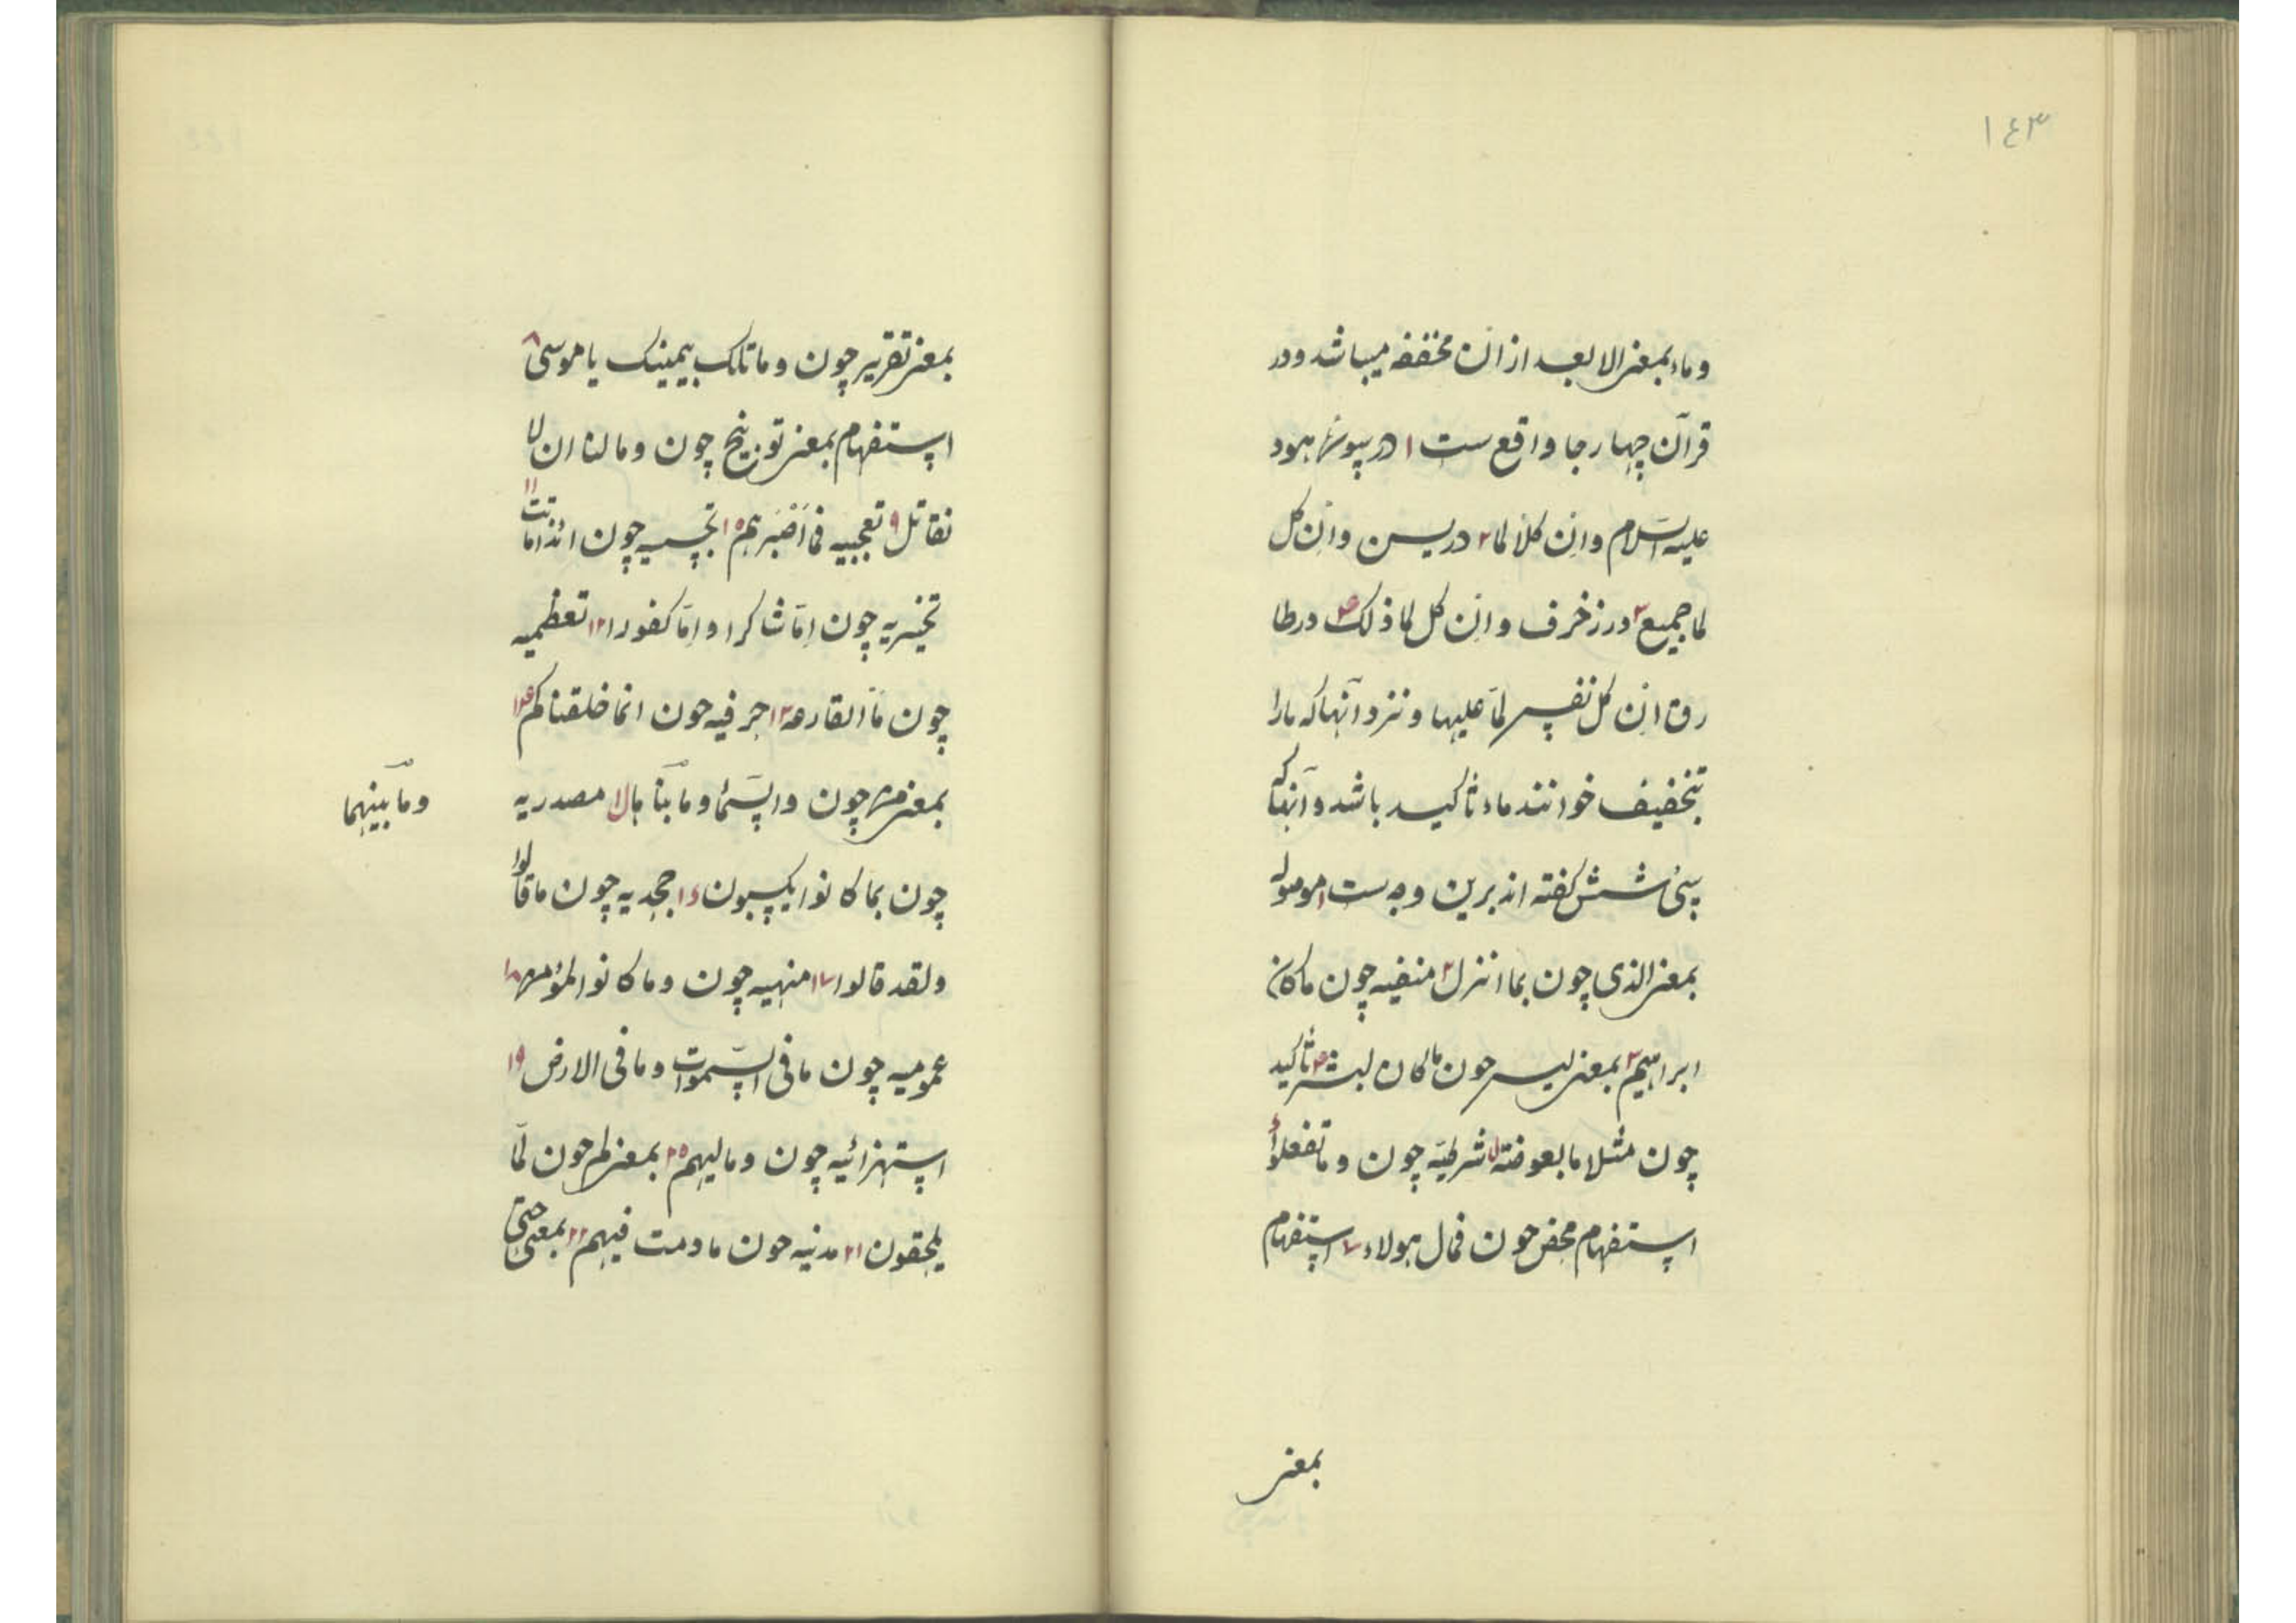 ١٤٣
وماء بمعنی الا بعد از ان مخففه میباشد و در
قرآن چهار جا واقع ست ١ در سوره هود
علیه السلام وان کلا لما ٢ در یسن وان کل
لما جمیع ٣ در زخرف وان کل لما ذلک ٤ در طا
رق ان کل نفس لما علیها و نزد آنها که ما را
بتخفیف خوانند ماء تاکید باشد و آنها که
سی شش گفته اند برین وجه ست ١ موصوله
بمعنی الذی چون بما انزل ٢ منفیه چون ماکان
ابراهیم ٣ بمعنی لیس چون ماکان لبشر ٤ تاکید
چون مثلا ما بعوضة ٥ شرطیه چون وما تفعلوا ٦
استفهام محض چون فمال هولاء ٧ استفهام
بمعنی
بمعنی تقریر چون وما تلک بیمینک یا موسی ٨
استفهام بمعنی توبیخ چون وما لنا ان لا
نقاتل ٩ تعجبیه فما اصبرهم ١٠ چون ائذا مامت ١١
تخییریه چون اما شاکرا واما کفورا ١٢ تعظمیه
چون ما القارعه ١٣ حرفیه چون انما خلقناکم ١٤
بمعنی من چون والسماء وما بناها ١٥ مصدریه
وما بینهما
چون بما کانوا یکسبون ١٦ جحدیه چون ما قالوا
ولقد قالوا ١٧ منهیه چون وما کانوا لیؤمنوا ١٨
عمومیه چون ما فی السموات وما فی الارض ١٩
استهزائیه چون ومالیهم ٢٠ بمعنی لم چون لما
یلحقون ٢١ مدنیه چون ما دمت فیهم ٢٢ بمعنی حتی